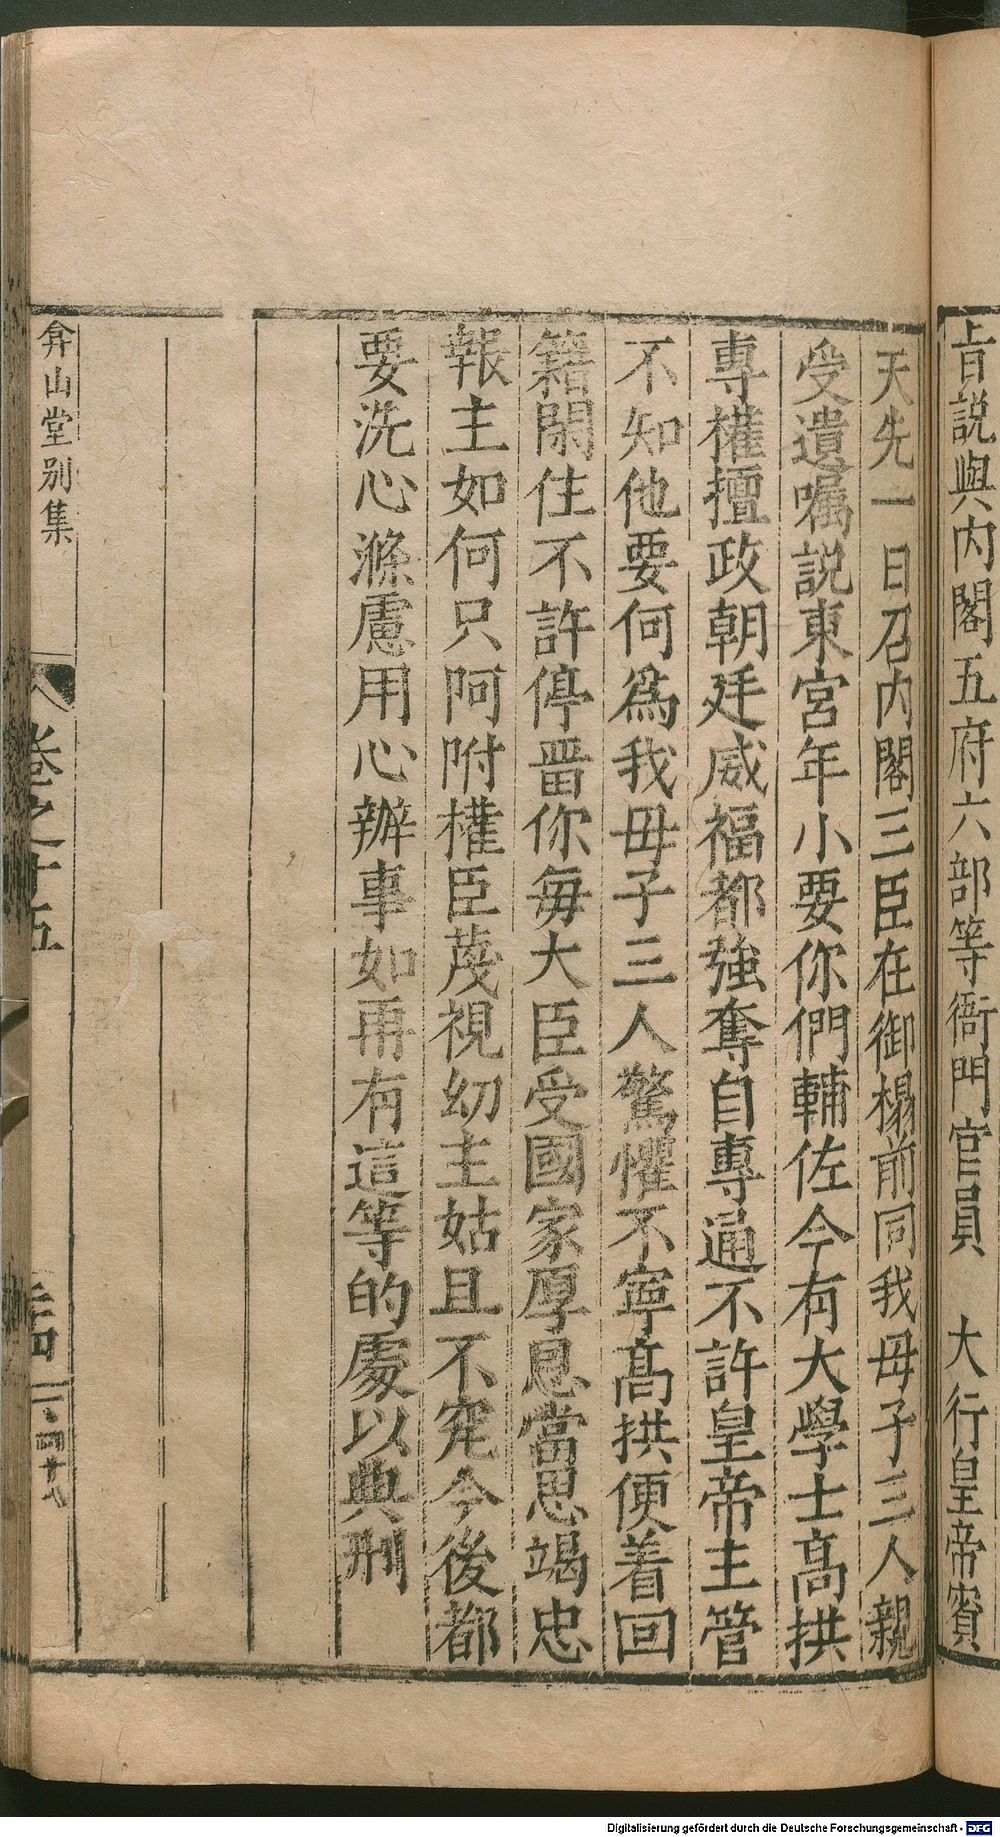 旨説與內閣五府六部等衙門官員　大行皇帝賓
天先一日召內閣三臣在御榻前同我毋子三人親
受遺囑説東宮年小要你們輔佐今有大學士高拱
專權擅政朝廷威福都強奪自專通不許皇帝主管
不知他要何爲我毋子三人驚懼不寧高拱便着回
籍閑住不許停畱你每大臣受國家厚恩當思竭忠
報主如何只阿附權臣蔑視幼主姑且不究今後都
要洗心滌慮用心辦事如再有這等的處以典刑
弇山堂别集
卷之十五
Digitalisierung gefördert durch die Deutsche Forschungsgemeinschaft - DFG